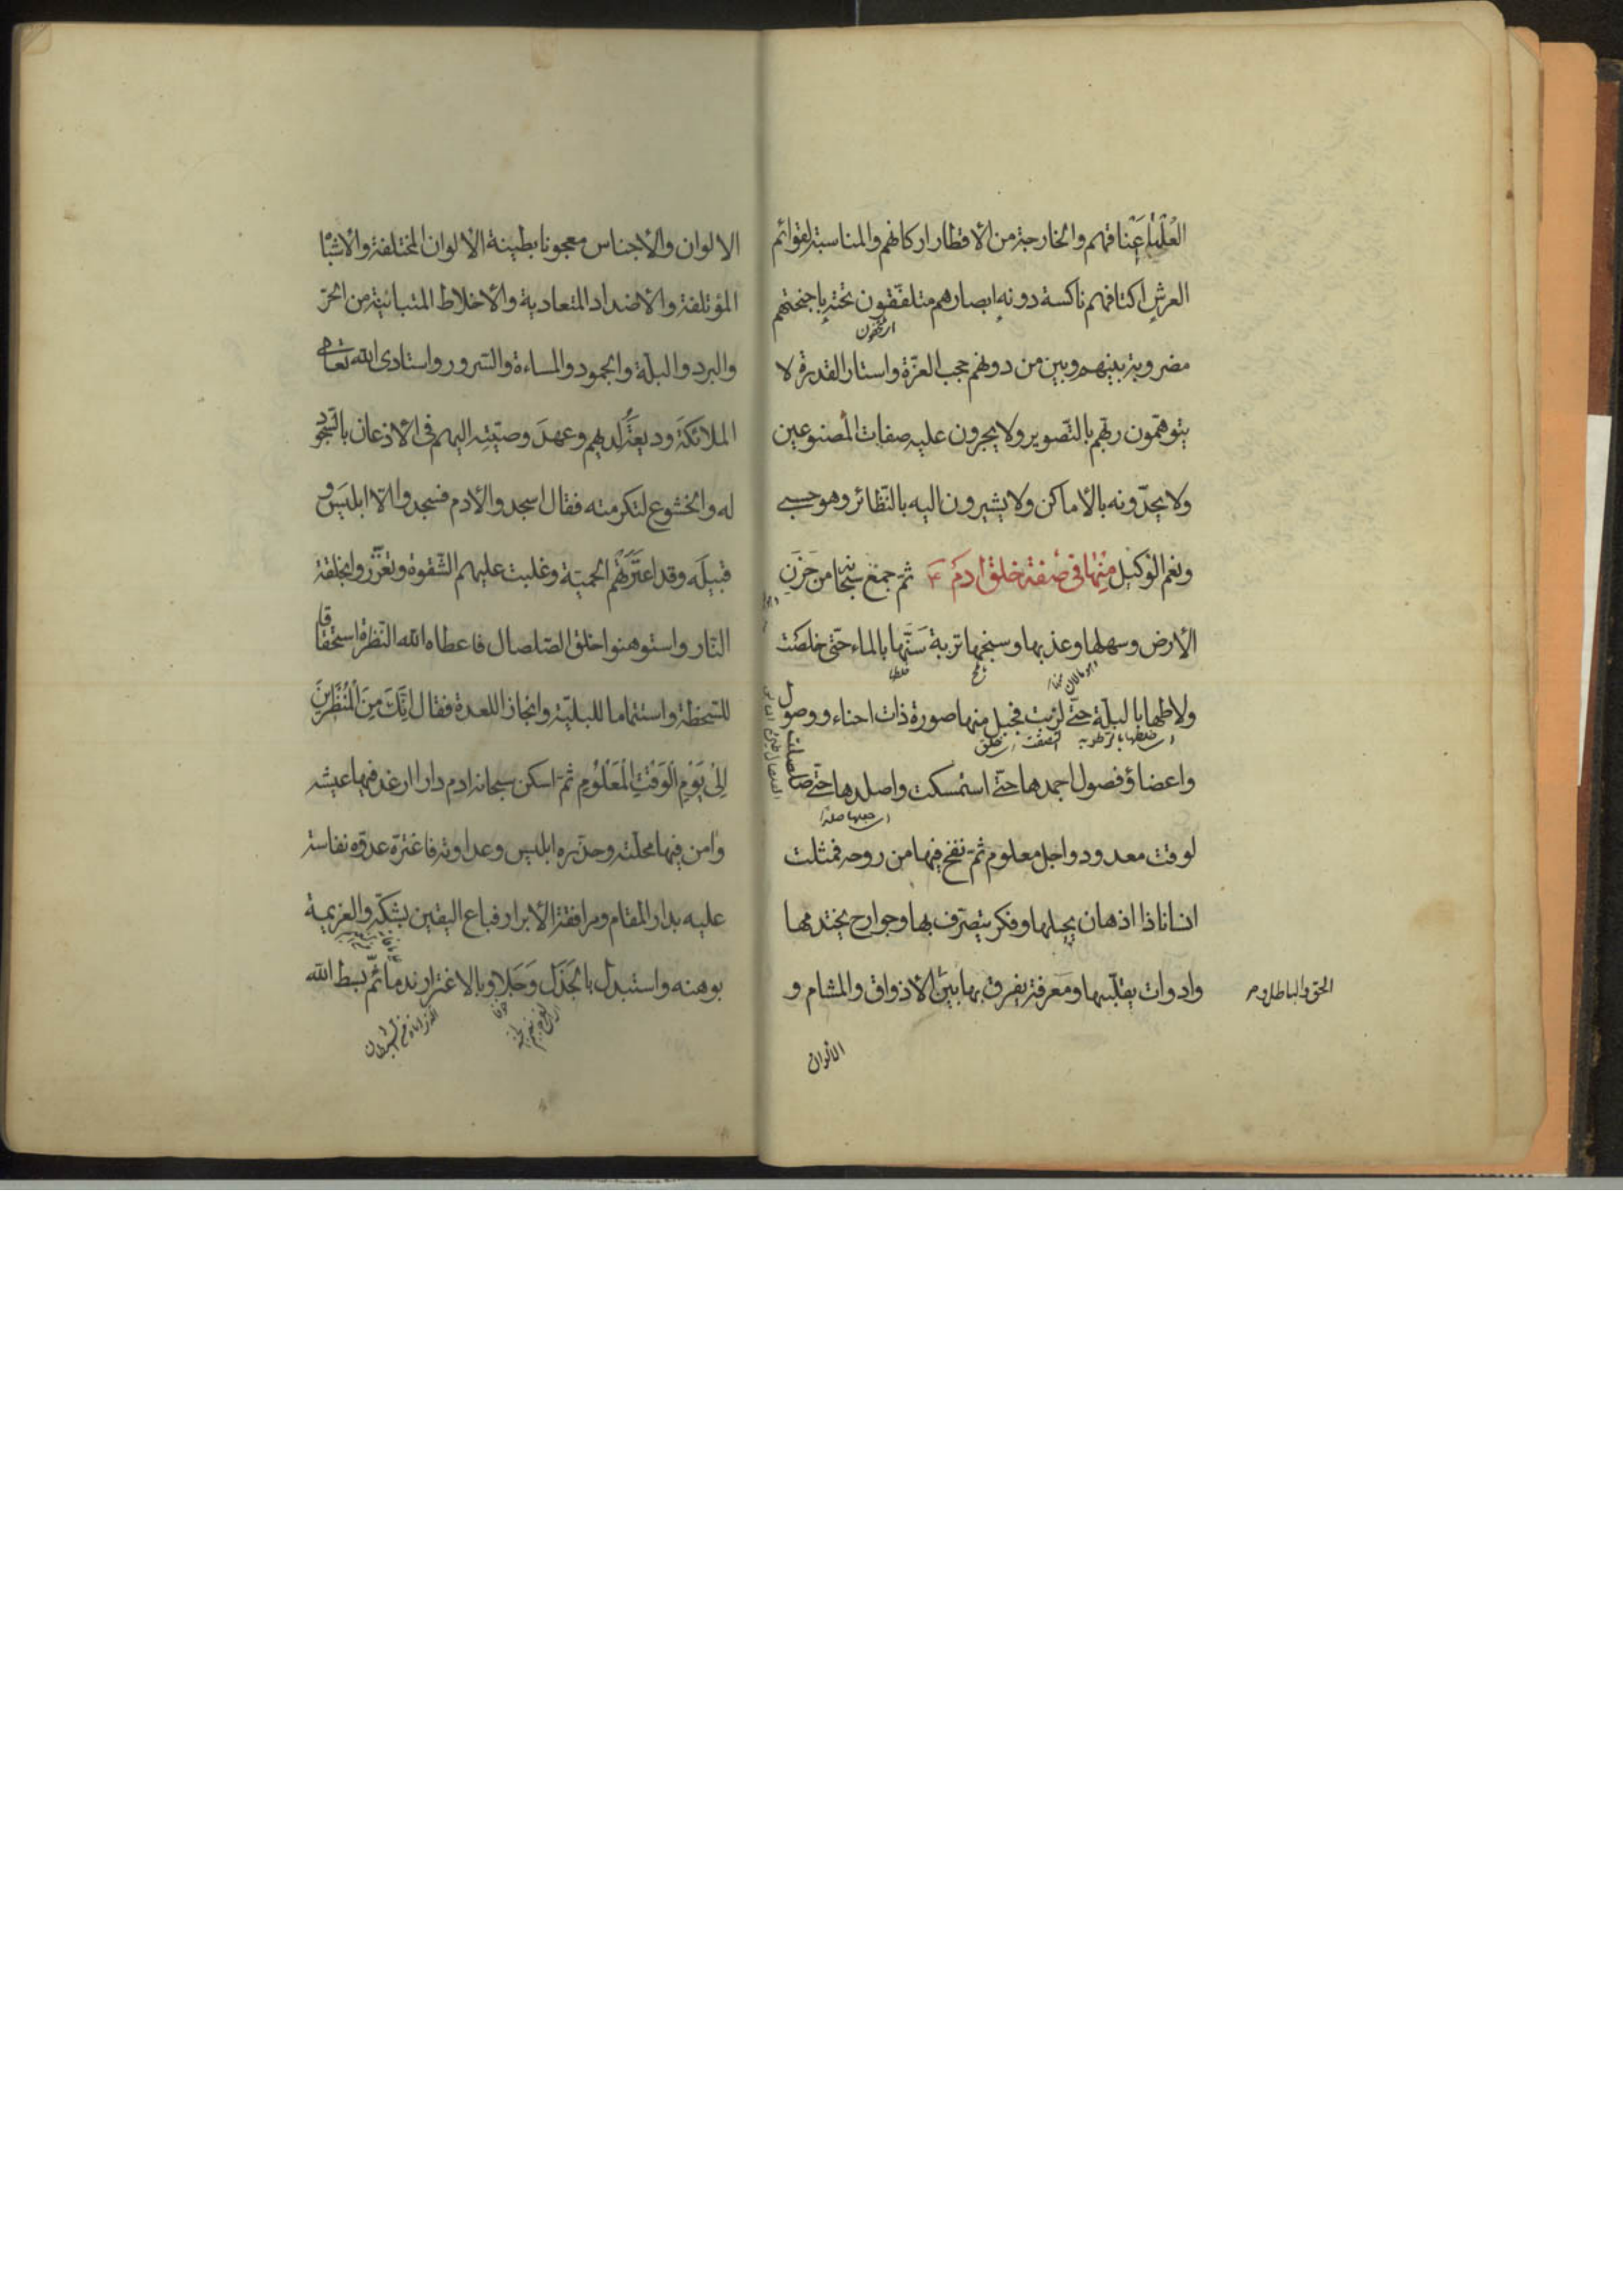 العُلْيَا اَعْنَاقهم والخارجة من الأقطار اركانهم والمناسبة لقوائم
العرش اكتافهم ناكسة دونه ابصارهم متلفّقون تحته باجنحتهم
مضروبة بينهم وبين من دونهم حجب العزّة واستار القدرة لا
يتوهّمون ربّهم بالتّصوير ولا يجرون عليه صفات المصنوعين
ولا يحدّونه بالأماكن ولا يشيرون اليه بالنّظائر وهو حسبي
ونعم الوكيل منها فى صفة خلق ادم ثمّ جمع سبحانه من حَزَنِ
الأرض وسهلها وعذبها وسبخها تربة سَنَّها بالماء حتّى خلصت
خلطها
ولاطها بالبلّة حتّى لزبت فجبل منها صورة ذات احناء ووصول
اى خلطها بالرطوبة التصقت اى خلق
واعضاؤ فصول اجمدها حتّى استمسكت واصلدها حتّى صلصلت
اى جعلها صلدا
لوقت معدود واجل معلوم ثمّ نفخ فيها من روحه فمثلت
انسانا ذا اذهان يجيلها وفكر يتصرّف بها وجوارح يختدمها
وادوات يقلّبها ومَعرفة يفرق بها بين الأذواق والمشام و
الحق والباطل و
الالوان
الالوان والأجناس معجونا بطينة الألوان المختلفة والأشبا
المؤتلفة والأضداد المتعادية والأخلاط المتباينة من الحرّ
والبرد والبلّة والجمود والمساءة والسّرور واستادى الله تعالى
الملائكة وديعتَه لديهم وعهدَ وصيّتِه اليهم فى الأذعان بالسّجود
له والخشوع لتكرمته فقال اسجدوا لأدم فسجدوا الّا ابليسَ و
قبيلَه وقد اعترتهُم الحميّة وغلبت عليهم الشّقوة وتعزّزوا بخلقة
النّار واستوهنوا خلق الصّلصال فاعطاه الله النّظرة استحقاقا
للسّخطة واستتماما للبليّة وانجازا للعدة فقال اِنَّكَ مِنَ الْمُنْظَرِينَ
اِلىٰ يَوْمِ الْوَقْتِ الْمَعْلُومِ ثمّ اسكن سبحانه ادم دارا ارغد فيها عيشه
وامن فيها محلّته وحذّره ابليس وعداوته فاغترّه عدوّه نفاسة
عليه بدار المقام ومرافقة الأبرار فباع اليقين بشكّه والعزيمة
بوهنه واستبدل بالجَذَل وَجَلا وبالاغترار ندما ثمّ بسط الله
خوفا